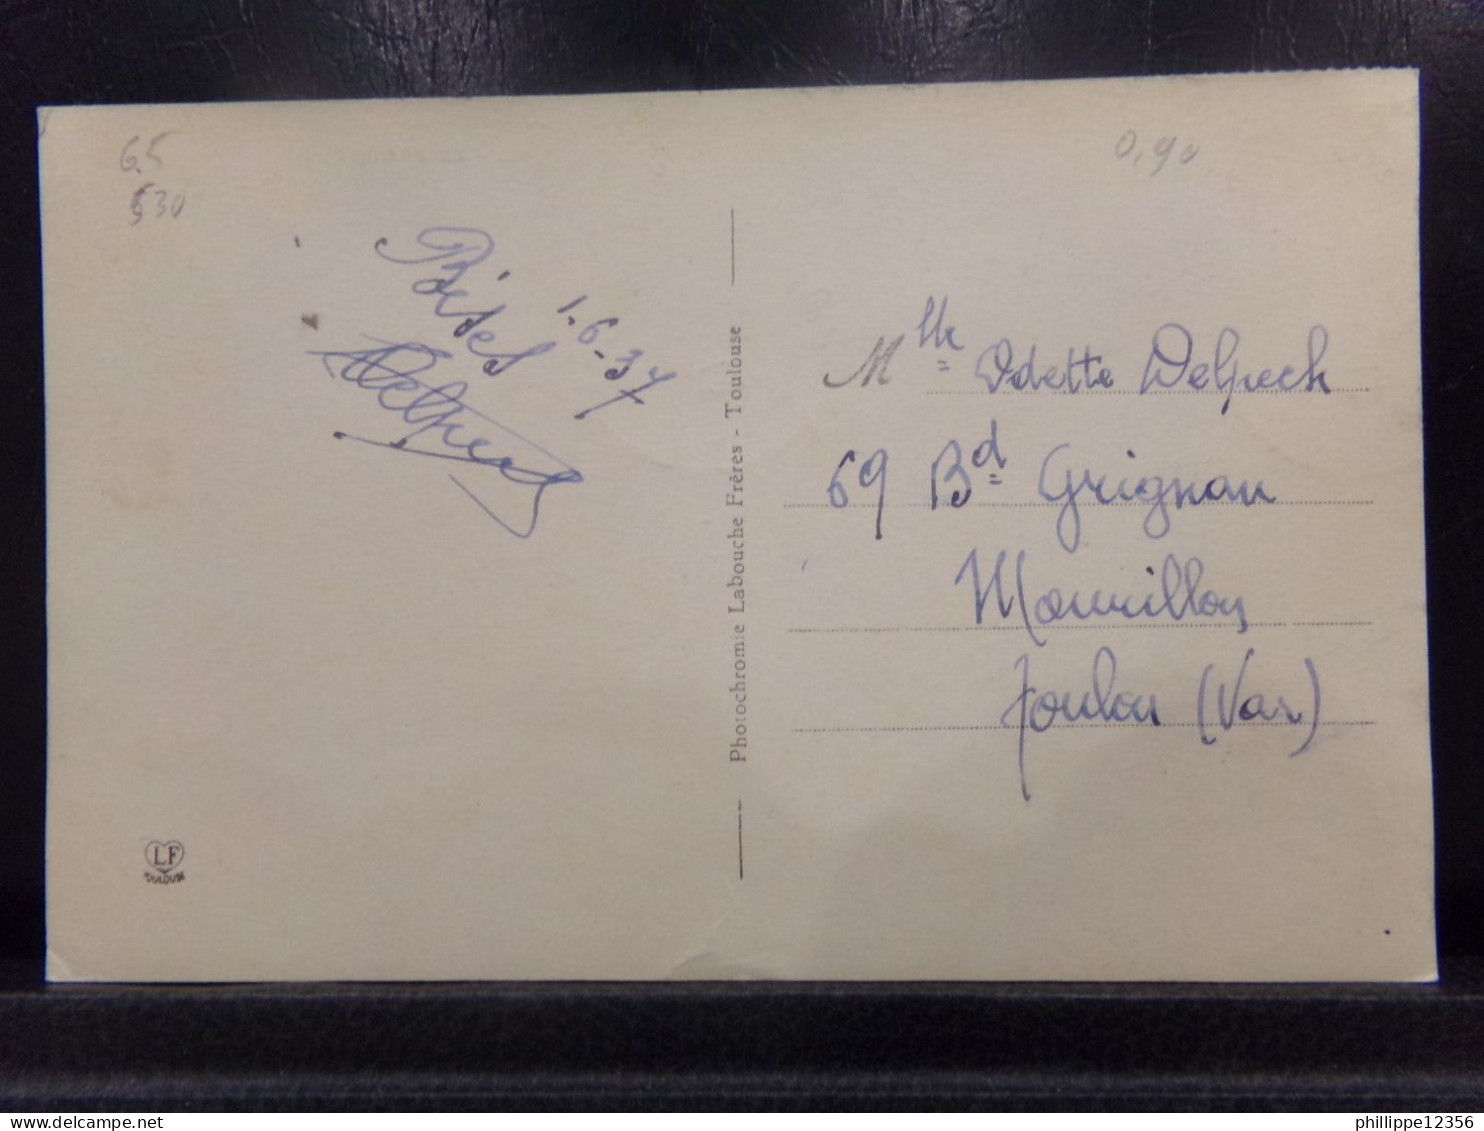 65
530
0,90
Bises
1.6.37
Delpech
Photochromie Labouche Frères - Toulouse
Mlle Odette Delpech
69 Bd Grignan
Mourillon
Toulon (Var)
LF
TOULOUSE
phillippe12356